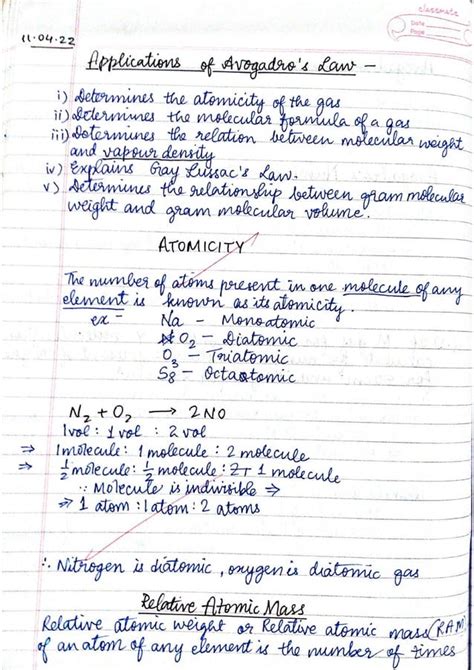 classmate
Date
Page
11.04.22
Applications of Avogadro's Law –
i) Determines the atomicity of the gas
ii) Determines the molecular formula of a gas
iii) Determines the relation between molecular weight
and vapour density
iv) Explains Gay Lussac's Law.
v) Determines the relationship between gram molecular
weight and gram molecular volume.
ATOMICITY
The number of atoms present in one molecule of any
element is known as its atomicity.
ex – Na – Monoatomic
O2 – Diatomic
O3 – Triatomic
S8 – Octaatomic
N2 + O2 → 2NO
1vol : 1vol : 2 vol
⇒ 1molecule : 1molecule : 2 molecule
⇒ 1/2 molecule : 1/2 molecule : 1 molecule
∵ Molecule is indivisible ⇒
⇒ 1 atom : 1atom : 2 atoms
∴ Nitrogen is diatomic, oxygen is diatomic gas
Relative Atomic Mass
Relative atomic weight or Relative atomic mass (RAM)
of an atom of any element is the number of times